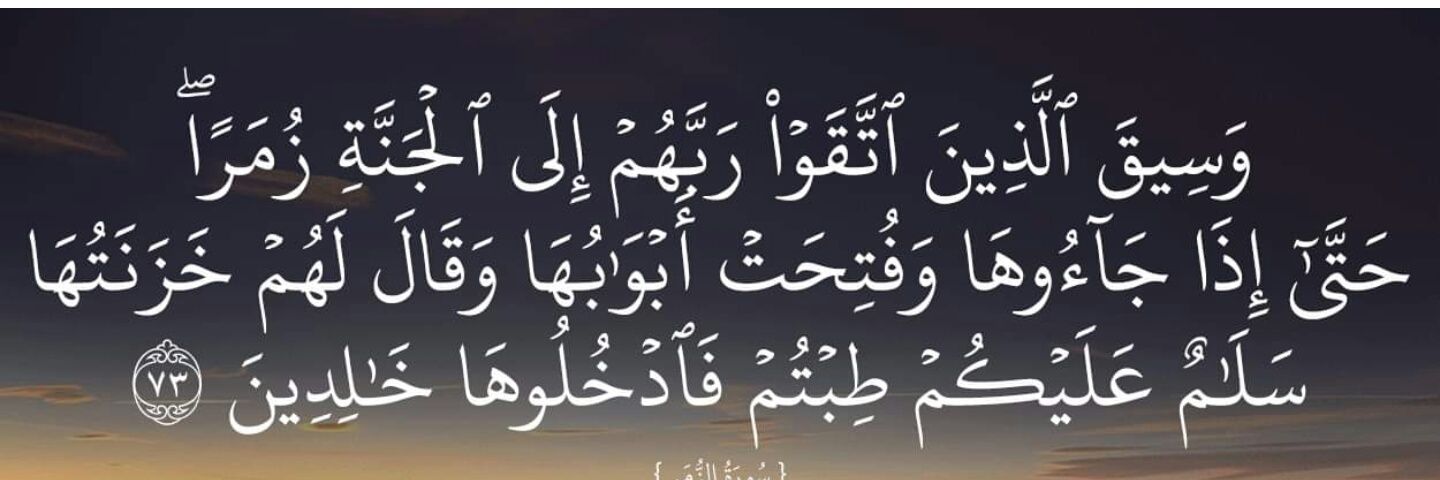 وَسِيقَ ٱلَّذِينَ ٱتَّقَوْا۟ رَبَّهُمْ إِلَى ٱلْجَنَّةِ زُمَرًا ۖ
حَتَّىٰٓ إِذَا جَآءُوهَا وَفُتِحَتْ أَبْوَٰبُهَا وَقَالَ لَهُمْ خَزَنَتُهَا
سَلَـٰمٌ عَلَيْكُمْ طِبْتُمْ فَٱدْخُلُوهَا خَـٰلِدِينَ ٧٣
{ سُورَةُ الزُّمَر }